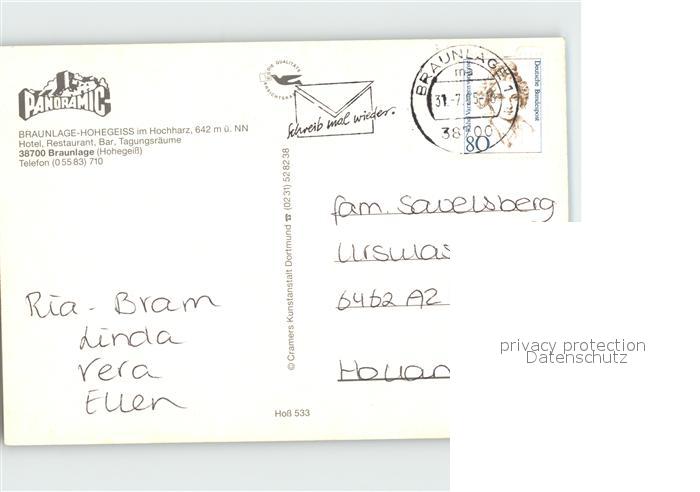 PANORAMIC
BRAUNLAGE-HOHEGEISS im Hochharz, 642 m ü. NN
Hotel, Restaurant, Bar, Tagungsräume
38700 Braunlage (Hohegeiß)
Telefon (0 55 83) 710
Schreib mal wieder.
BRAUNLAGE 1
ma
38700
Deutsche Bundespost
80
© Cramers Kunstanstalt Dortmund ☎ (02 31) 52 82 38
fam. Savelsberg
Ursulas
6462 AZ
Hollan
Ria - Bram
Linda
Vera
Ellen
Hoß 533
privacy protection
Datenschutz